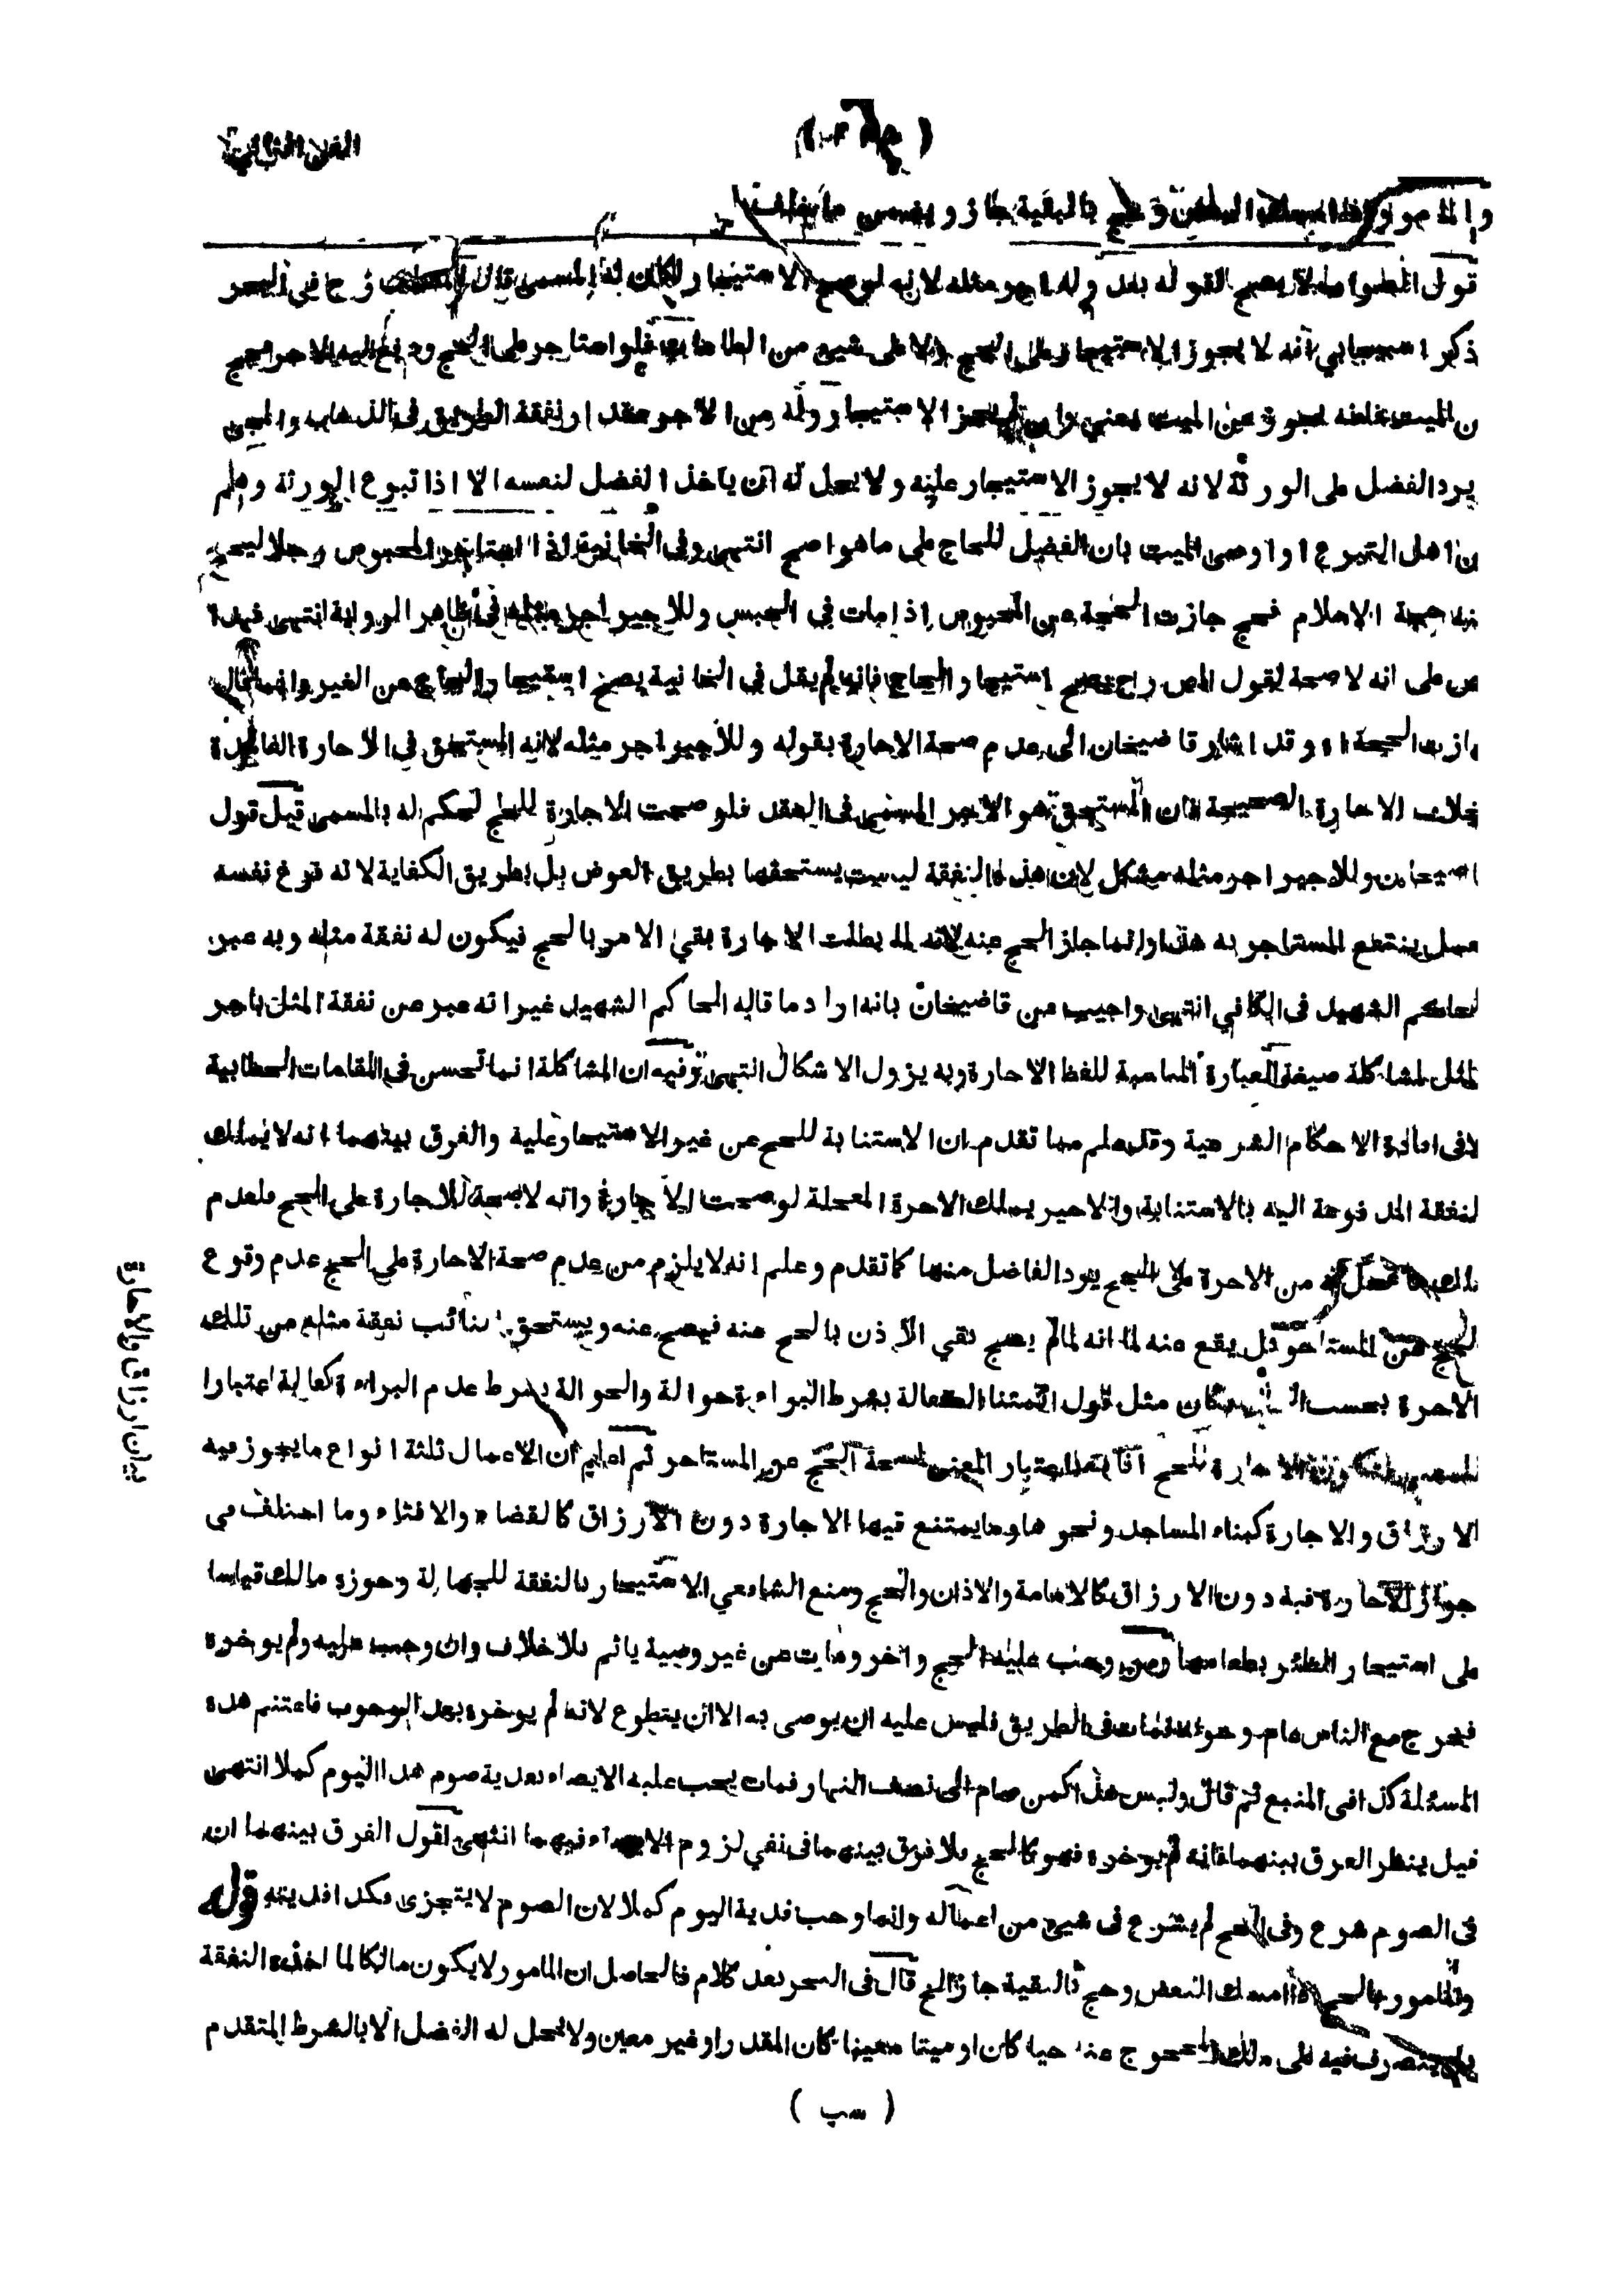 الفن الثاني
والمامور اذا امسك البعض وحج بالبقية جاز ويضمن ما خلف
قول لا يصح لقوله بعد وله اجر مثله لانه لو صح الاستيجار لكان له المسمى في البحر
ذكر اسبيجابي انه لا يجوز الاستيجار على الحج ولا على شيئ من الطاعات فلو استاجر على الحج ودفع اليه الاجر فحج
ن الميت فانه يجوز عن الميت يعني وان لم يجز الاستيجار وله من الاجر مقدار نفقة الطريق في الذهاب والمجئ
يرد الفضل على الورثة لانه لا يجوز الاستيجار عليه ولا يحل له ان ياخذ الفضل لنفسه الا اذا تبرع الورثة وهم
ن اهل التبرع او اوصى الميت بان الفضل للحاج على ما هو اصح انتهى وفى الخانية اذا استاجر المحبوس رجلا ليحج
نه حجة الاسلام فحج جازت الحجة عن المحبوس اذا مات في الحبس وللاجير اجر مثله في ظاهر الرواية انتهى فهذا
ص على انه لا صحة لقول المص رح يصح استيجار الحاج فانه لم يقل في الخانية يصح استيجار الحاج عن الغير وانما قال
ازت الحجة اه وقد اشار قاضيخان الى عدم صحة الاجارة بقوله وللاجير اجر مثله لانه المستحق في الاجارة الفاسدة
خلاف الاجارة الصحيحة فان المستحق هو الاجر المسمى فى العقد فلو صحت الاجارة للحج لحكم له بالمسمى قيل قول
اضيخان وللاجير اجر مثله مشكل لان هذه النفقة ليست يستحقها بطريق العوض بل بطريق الكفاية لانه فرغ نفسه
عمل ينتفع المستاجر به هذا وانما جاز الحج عنه لانه لما بطلت الاجارة بقي الامر بالحج فيكون له نفقة مثله وبه عبر
لحاكم الشهيد فى الكافي انتهى واجيب عن قاضيخان بانه اراد ما قاله الحاكم الشهيد غير انه عبر عن نفقة المثل باجر
لمثل لمشاكلة صيغة العبارة المناسبة للفظ الاجارة وبه يزول الاشكال انتهى وفيه ان المشاكلة انما تحسن في المقامات الخطابية
لافى افادة الاحكام الشرعية وقد علم مما تقدم ان الاستنابة للحج عن غير الاستيجار علية والفرق بينهما انه لا يملك
لنفقة المدفوعة اليه بالاستنابة والاجير يملك الاجرة المعجلة لو صحت الاجارة وانه لا صحة للاجارة على الحج فلعدم
من الاجرة على الحج يرد الفاضل منها كما تقدم وعلم انه لا يلزم من عدم صحة الاجارة على الحج عدم وقوع
الحج عن المستاجر بل يقع عنه لما انه لما لم يصح بقي الاذن بالحج عنه فيصح عنه ويستحق النائب نفقة مثله من تلك
الاجرة بحسب فكان مثل قول ائمتنا الكفالة بشرط البراءة حوالة والحوالة بشرط عدم البراءة كفالة اعتبارا
للمعنى الاجارة للحج باعتبار المعنى لصحة الحج عن المستاجر ثم اعلم ان الاعمال ثلثة انواع ما يجوز فيه
الارزاق والاجارة كبناء المساجد ونحوها وما يمتنع فيها الاجارة دون الارزاق كالقضاء والافتاء وما اختلف في
جواز الاجارة فية دون الارزاق كالامامة والاذان والحج ومنع الشافعي الاستيجار بالنفقة للجهالة وجوزه مالك قياسا
على استيجار الظئر بطعامها ومن وجب عليه الحج واخر ومات عن غير وصية ياثم بلا خلاف وان وجب عليه ولم يوخره
فخرج مع الناس عام وجوبه فمات فى الطريق فليس عليه ان يوصى به الا ان يتطوع لانه لم يوخره بعد الوجوب فاغتنم هذه
المسئلة كذا فى المنبع ثم قال وليس هذا كمن صام الى نصف النهار فمات يجب عليه الايصاء بفدية صوم هذا اليوم كملا انتهى
قيل ينظر الفرق بينهما فانه لم يوخره فهو كالحج بلا فرق بينهما فى نفي لزوم الايصاء فيهما انتهى اقول الفرق بينهما ان
فى الصوم شرع وفى الحج لم يشرع فى شيئ من اعماله وانما وجب فدية اليوم كملا لان الصوم لا يتجزى فكذا فديته قوله
والمامور بالحج اذا امسك البعض وحج بالبقية جاز الخ قال فى البحر بعد كلام فالحاصل ان المامور لا يكون مالكا لما اخذه النفقة
بل يتصرف فيه على ملك المحجوج عنه حيا كان او ميتا معينا كان المقدر او غير معين ولا يحل له الفضل الا بالشرط المتقدم
بيان ارزاق والاجارة
( سب )